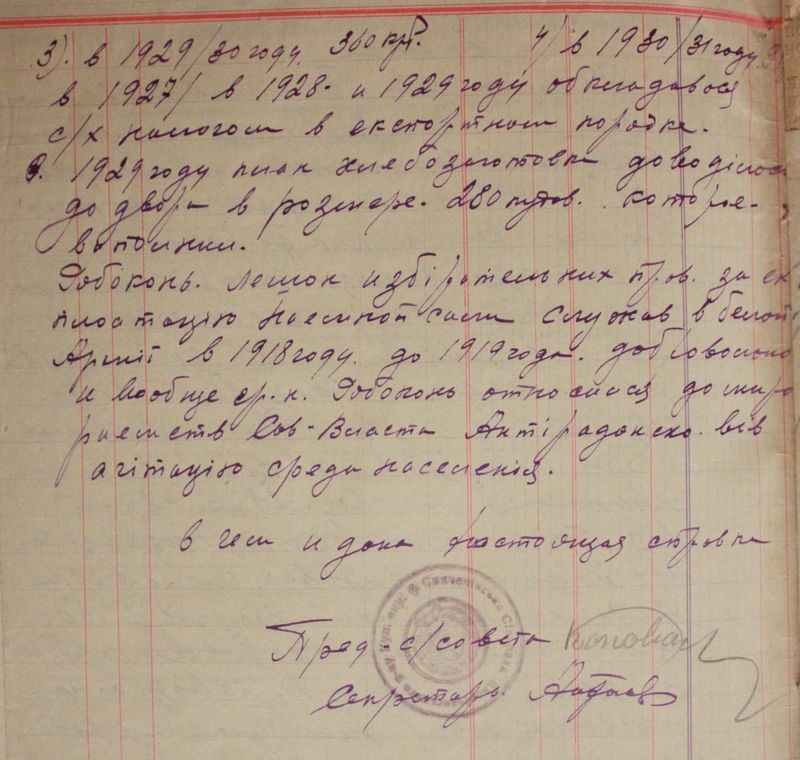 3). в 1929/30 году. 360 крб. 4/ в 1930/31 году.
в 1927/ в 1928- и 1929 году обкладався
с/х налогом в експортном порядке.
1929 году план хлебозаготовки доводілося
до двора в розмере. 280 пудов. которые-
виполнил.
Робоконь. лешон избірательних прав. за екс
плоатацію наемной сили служав в белой
Армії в 1918 году. до 1919 года. добровольно
и вообще гр. н. Робоконь относился до миро
раемств Сов-Власти Антірадянско. вів
агітацію среди населенія.
в чем и дана настоящая справка
Пред с/совета
Секретарь